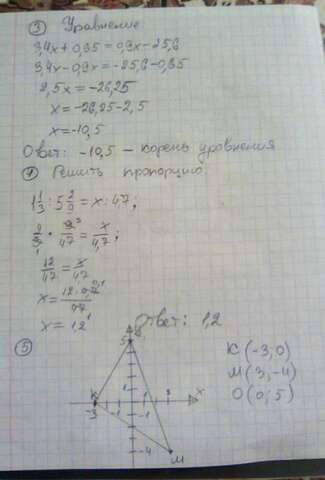 ③ Уравнение
3,4x + 0,65 = 0,9x - 25,6
3,4x - 0,9x = -25,6 - 0,65
2,5x = -26,25
x = -26,25 - 2,5
x = -10,5
Ответ: -10,5 - корень уравнения
④ Решить пропорцию.
1 1/3 : 5 2/9 = x : 4,7;
4/3 · 9/47 = x/4,7;
12/47 = x/4,7
x = 12·4,7/47
x = 1,2
Ответ: 1,2
⑤
5
K
-3 -1 1 3 x
-1
-4
M
K (-3; 0)
M (3; -4)
O (0; 5)